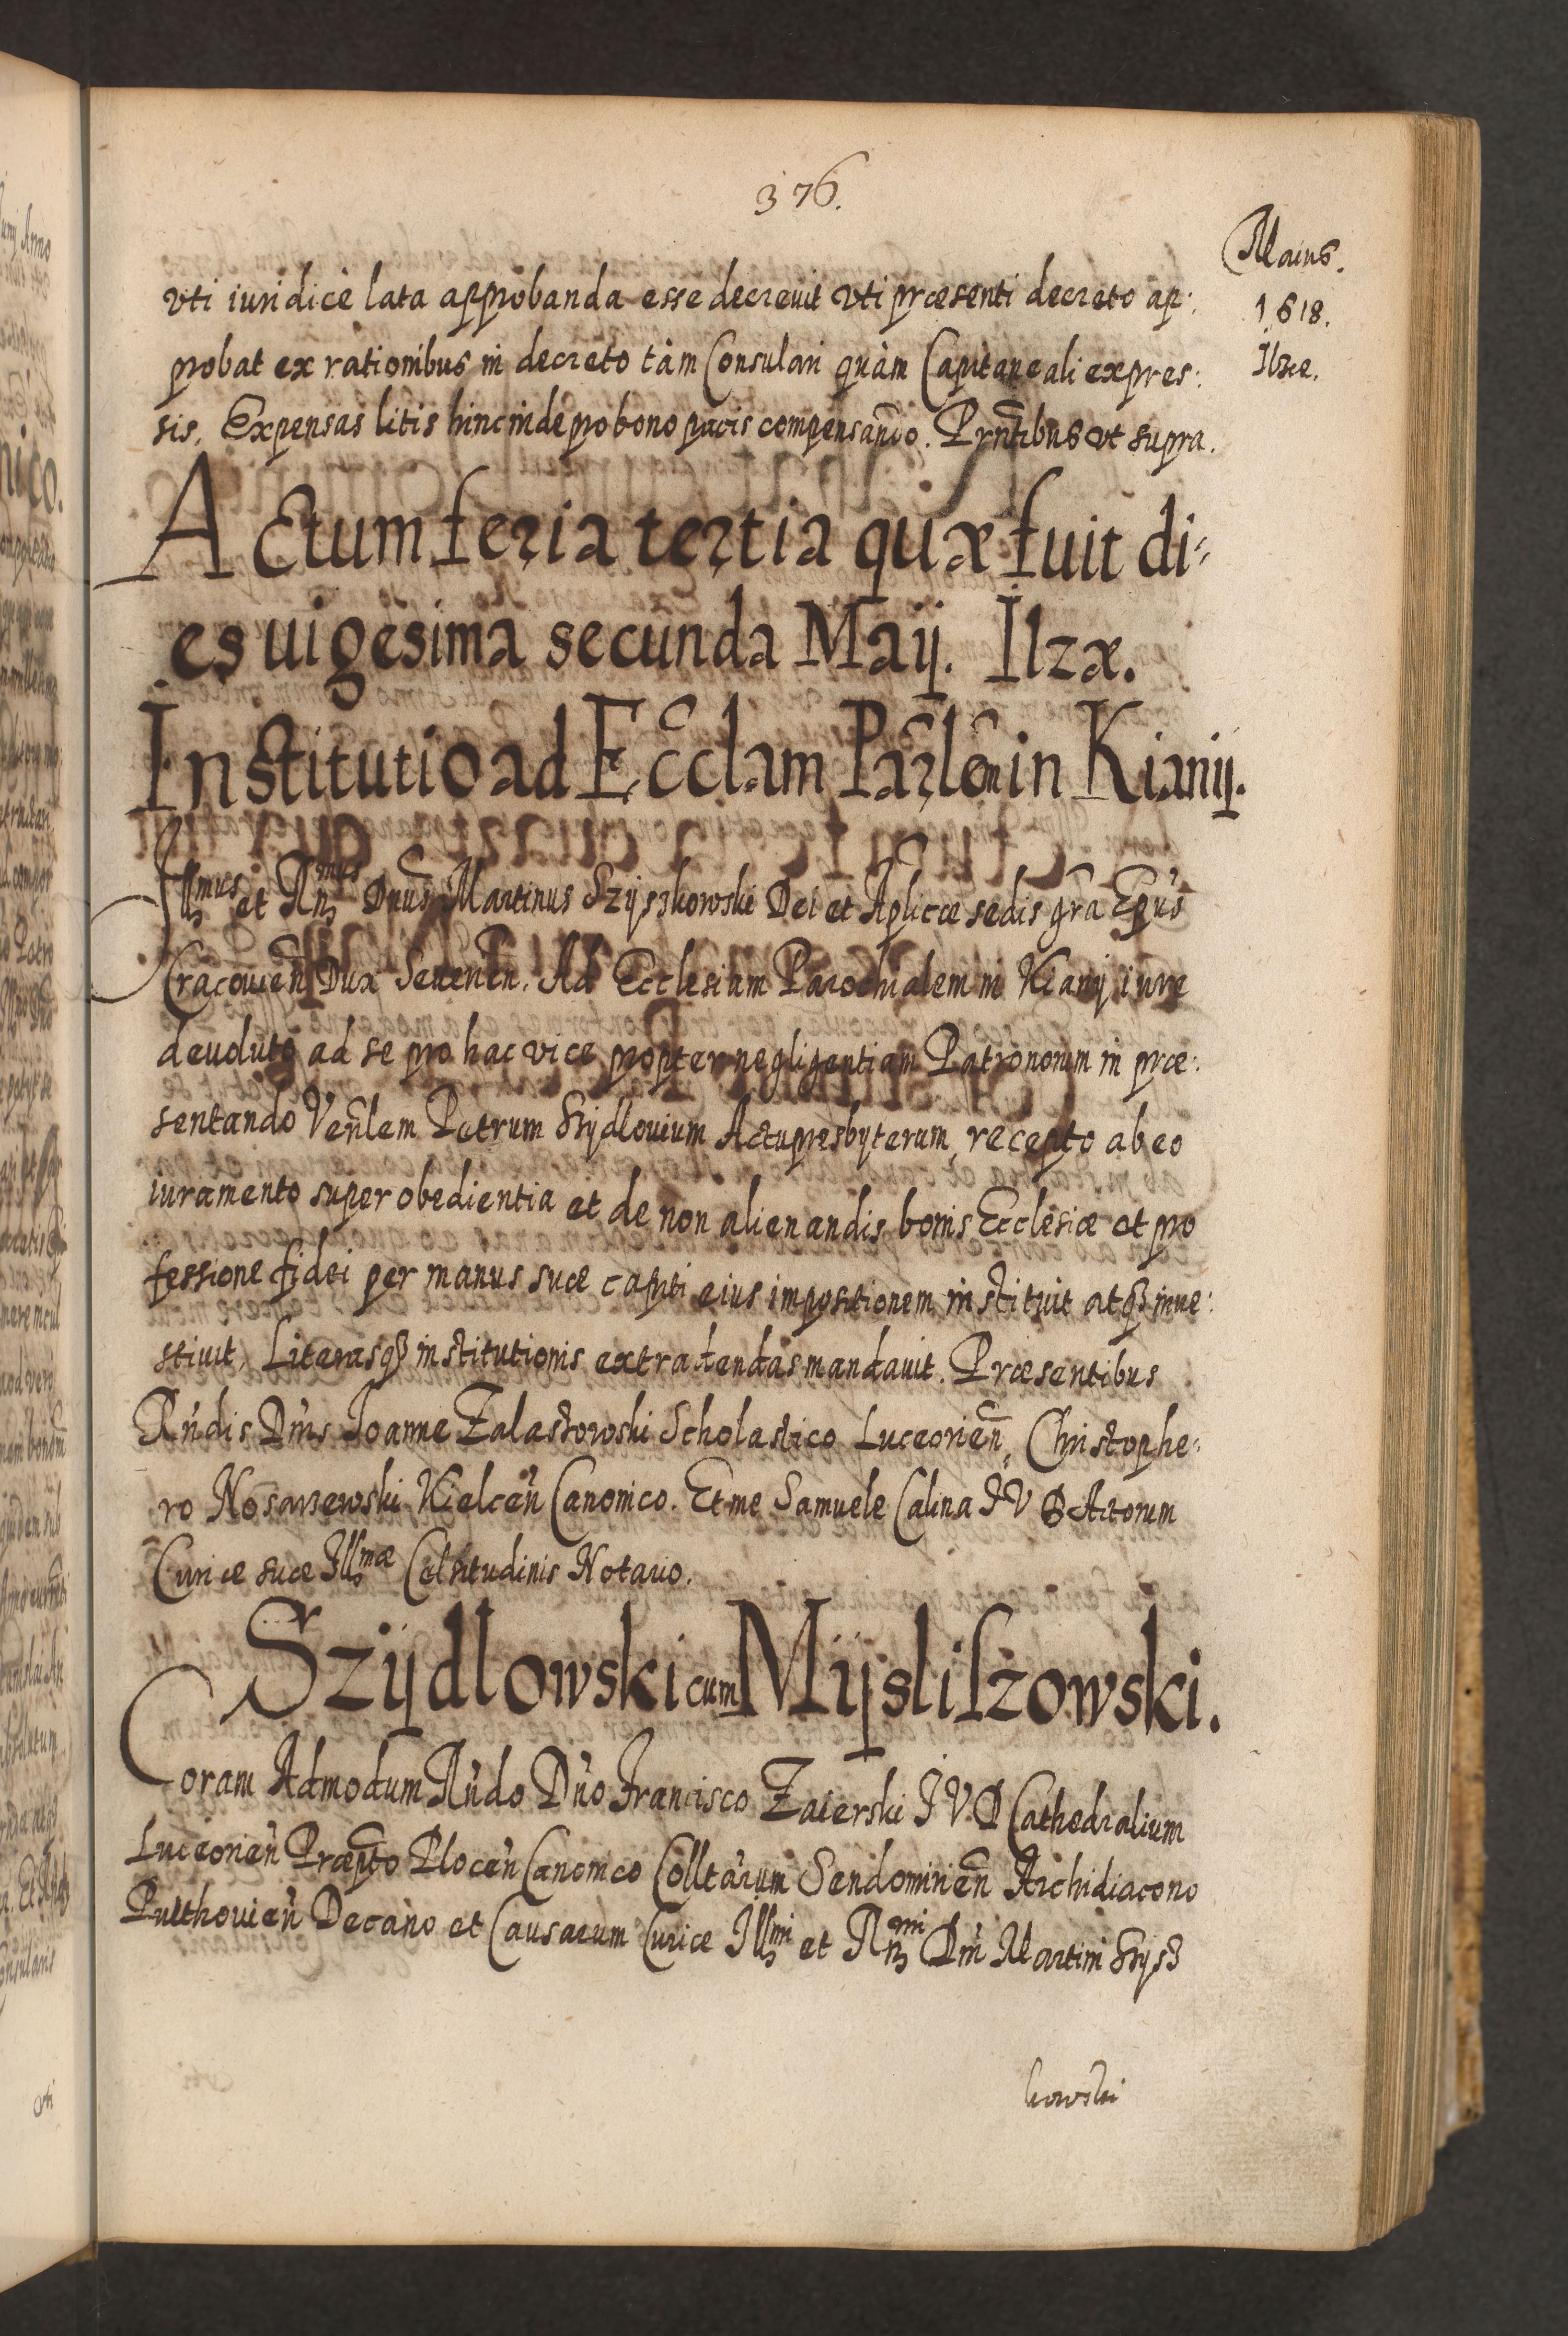 376.
Maius.
1618.
Ilzæ.
vti iuridicè lata approbanda esse decreuit vti præsenti decreto ap:
probat ex rationibus in decreto tàm Consulari quàm Capitaneali expres:
sis. Expensas litis hinc inde pro bono pacis compensando. Prñtibus vt supra.
Actum feria tertia quæ fuit di-
es uigesima secunda Maij. Ilzæ.
Institutio ad Ecclam Parlem in Kianij.
Illmus et Rmus Dnus Martinus Szyszkowski Dei et Aplicæ sedis gra Epus
Cracouien Dux Seuerien. Ad Ecclesiam Parochialem in Kianij iure
deuoluto ad se pro hac vice propter negligentiam Patronorum in præ:
sentando Venlem Petrum Szydlouium Actupresbyterum, recepto ab eo
iuramento super obedientia et de non alienandis bonis Ecclesiæ et pro
fessione fidei per manus suæ capiti eius impositionem instituit atq3 inue:
stiuit. Literasq3 institutionis extradendas mandauit. Præsentibus
Rndis Dnis Ioanne Zalastowski Scholastico Luceorien, Christophe:
ro Nosarzewski Kielcen Canonico. Et me Samuele Calina I V D Actorum
Curiæ suæ Illmæ Celsitudinis Notario.
Szijdlowski cum Mijsliszowski.
Coram Admodum Rndo Dno Francisco Zaierski I V. D Cathedralium
Luceorien Præpto Plocen Canonico Colltarum Sendomirien Archidiacono
Pulthouien Decano et Causarum Curiæ Illmi et Rmi Dni Martini Szysz
kowski